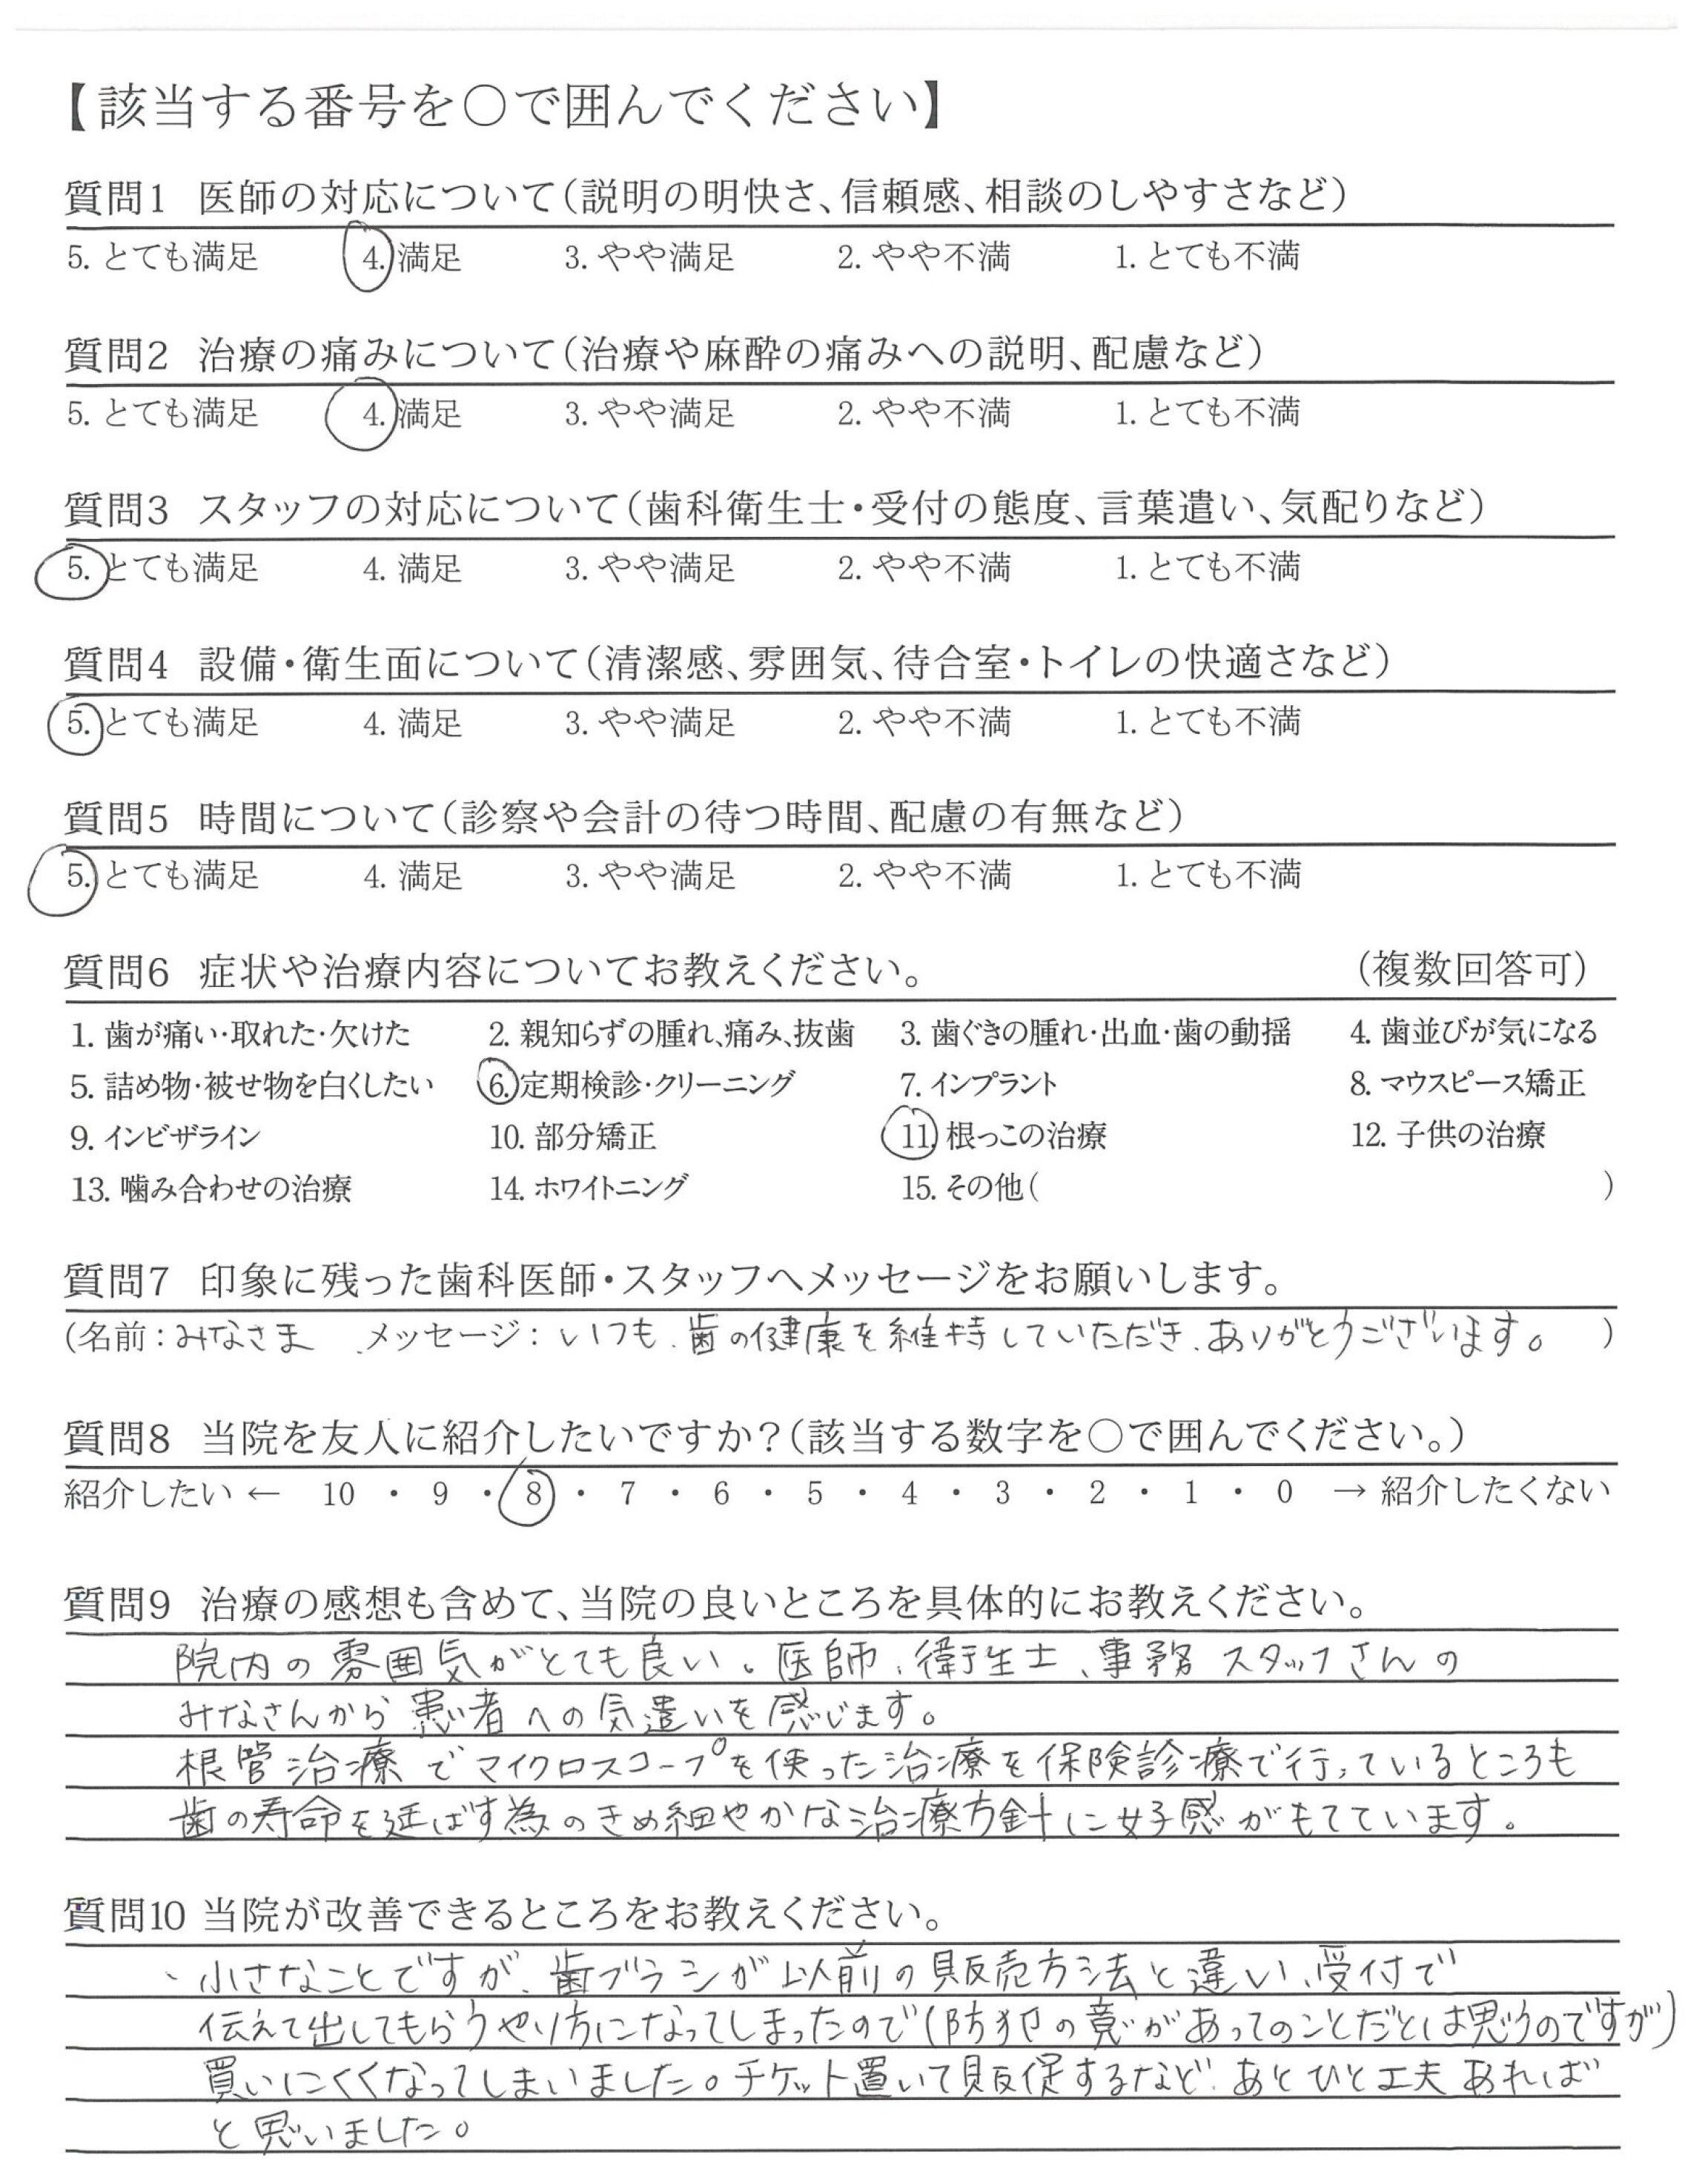 【該当する番号を○で囲んでください】
質問1 医師の対応について(説明の明快さ、信頼感、相談のしやすさなど)
5. とても満足 4. 満足 3. やや満足 2. やや不満 1. とても不満
質問2 治療の痛みについて(治療や麻酔の痛みへの説明、配慮など)
5. とても満足 4. 満足 3. やや満足 2. やや不満 1. とても不満
質問3 スタッフの対応について(歯科衛生士・受付の態度、言葉遣い、気配りなど)
5. とても満足 4. 満足 3. やや満足 2. やや不満 1. とても不満
質問4 設備・衛生面について(清潔感、雰囲気、待合室・トイレの快適さなど)
5. とても満足 4. 満足 3. やや満足 2. やや不満 1. とても不満
質問5 時間について(診察や会計の待つ時間、配慮の有無など)
5. とても満足 4. 満足 3. やや満足 2. やや不満 1. とても不満
質問6 症状や治療内容についてお教えください。 (複数回答可)
1. 歯が痛い・取れた・欠けた 2. 親知らずの腫れ、痛み、抜歯 3. 歯ぐきの腫れ・出血・歯の動揺 4. 歯並びが気になる
5. 詰め物・被せ物を白くしたい 6. 定期検診・クリーニング 7. インプラント 8. マウスピース矯正
9. インビザライン 10. 部分矯正 11. 根っこの治療 12. 子供の治療
13. 噛み合わせの治療 14. ホワイトニング 15. その他( )
質問7 印象に残った歯科医師・スタッフへメッセージをお願いします。
(名前:みなさま メッセージ:いつも、歯の健康を維持していただき、ありがとうございます。 )
質問8 当院を友人に紹介したいですか?(該当する数字を○で囲んでください。)
紹介したい ← 10 ・ 9 ・ 8 ・ 7 ・ 6 ・ 5 ・ 4 ・ 3 ・ 2 ・ 1 ・ 0 → 紹介したくない
質問9 治療の感想も含めて、当院の良いところを具体的にお教えください。
院内の雰囲気がとても良い。医師、衛生士、事務スタッフさんの
みなさんから患者への気遣いを感じます。
根管治療でマイクロスコープを使った治療を保険診療で行っているところも
歯の寿命を延ばす為のきめ細やかな治療方針に好感がもてています。
質問10 当院が改善できるところをお教えください。
、小さなことですが、歯ブラシが以前の販売方法と違い、受付で
伝えて出してもらうやり方になってしまったので(防犯の意があってのことだとは思うのですが)
買いにくくなってしまいました。チケット置いて販促するなど、あとひと工夫あれば
と思いました。